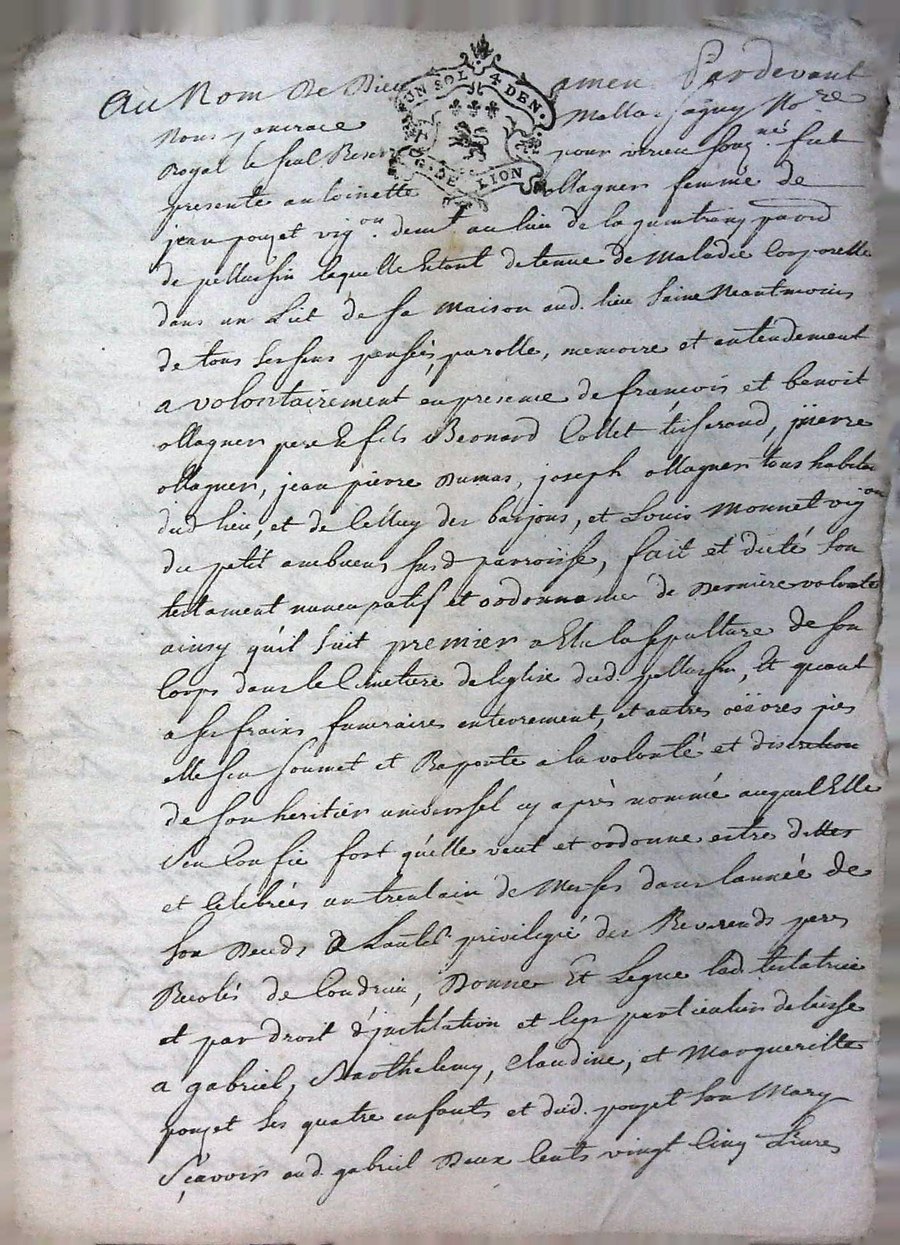 Au Nom De Dieu amen Pardevant
UN SOL 4 DEN.
G. DE LION
Nous pancrace Mallassagny No.re
Royal le seul Reservé pour virieu soug.né fut
presente antoinette ollagner femme de
jean poujet vig.on dem.t au lieu de la parr.
de pellussin laquelle Etant detenue de Maladie Corporelle
dans un Lict de sa Maison aud. lieu Saine Neantmoins
de tous Ses sens pensées, parolle, memoire et entendement
a volontairement en presence de francois et benoit
ollagner pere & fils Bernard Collet tisserand, pierre
ollagner, jean pierre Dumas, joseph ollagner tous habitan
dud. lieu, et de Celluy des barjons, et Louis Monnet vig.on
du petit ambuen, susd. parroisse, fait et dicté Son
testament nuncupatif et ordonnance de Derniere volonté
ainsy qu'il suit premier a Elu la sepulture de son
Corps dans le Cimetiere de leglise dud. pellussin, Et quant
a ses fraix funeraires enterrement, et autres oëuvres pies
elle sen soumet et Raporte a la volonté et discretion
de son heritier universel cy après nommé auquel Elle
s'en Confie fors qu'elle veut et ordonne estre dittes
et Celebrées un trentain de Messes dans lannée de
Son Deceds a Lautel privilegié des Reverends peres
Recolés de Condrieu, Donne Et Legue lad. testatrice
et par droit d'jnstitution et legs particulier delaisse
a gabriel, Barthelemy, Claudine, et Margueritte
poujet Ses quatre enfants et dud. poujet Son Mary
Sçavoir aud. gabriel Deux Cents vingt Cinq Livres